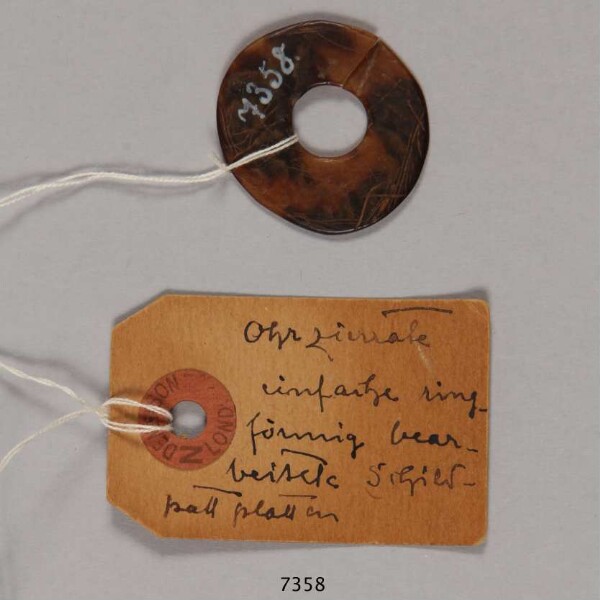 7358.
Ohrzierrate
einfache ring-
förmig bear-
beitete Schild-
patt platten
DENNISON
LONDON
7358